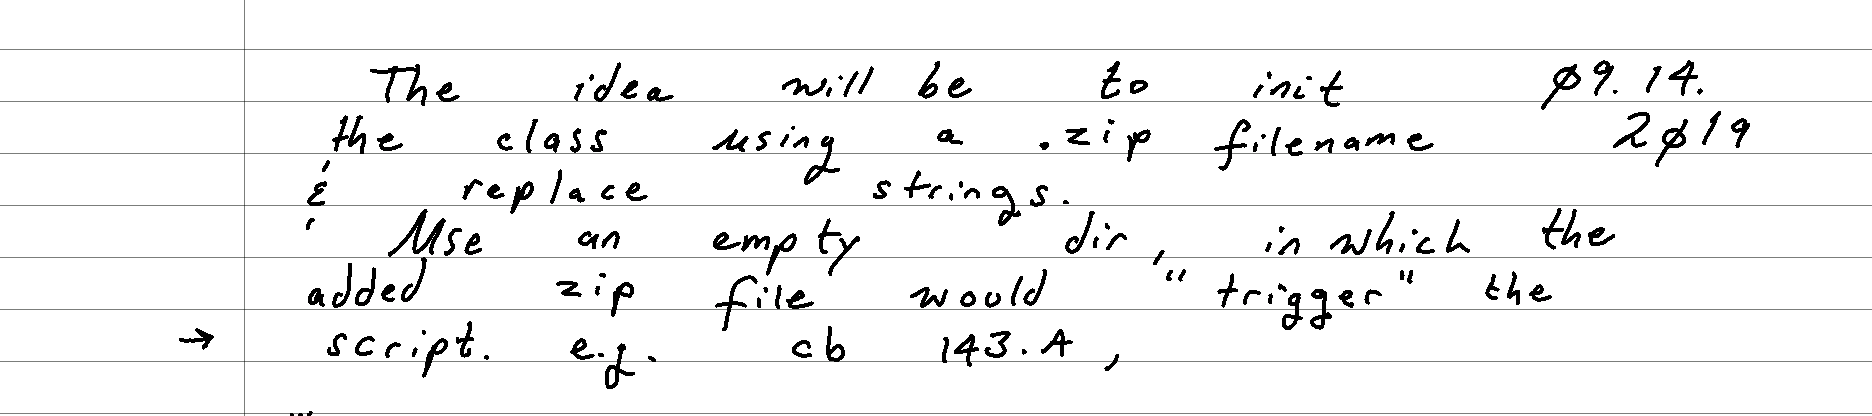 The idea will be to init Ø9.14.
the class using a .zip filename 2Ø19
& replace strings.
Use an empty dir, in which the
added zip file would "trigger" the
→ script. e.g. cb 143.A,